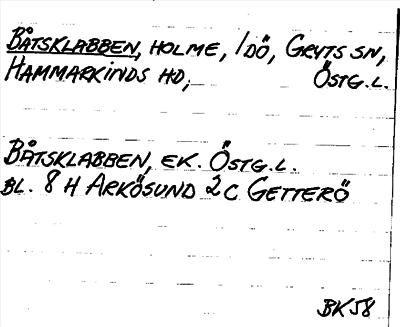 BÅTSKLABBEN, HOLME, IDÖ, GRYTS SN,
HAMMARKINDS HD, ÖSTG.L.
BÅTSKLABBEN, EK. ÖSTG.L.
BL. 8 H ARKÖSUND 2C GETTERÖ
BK58